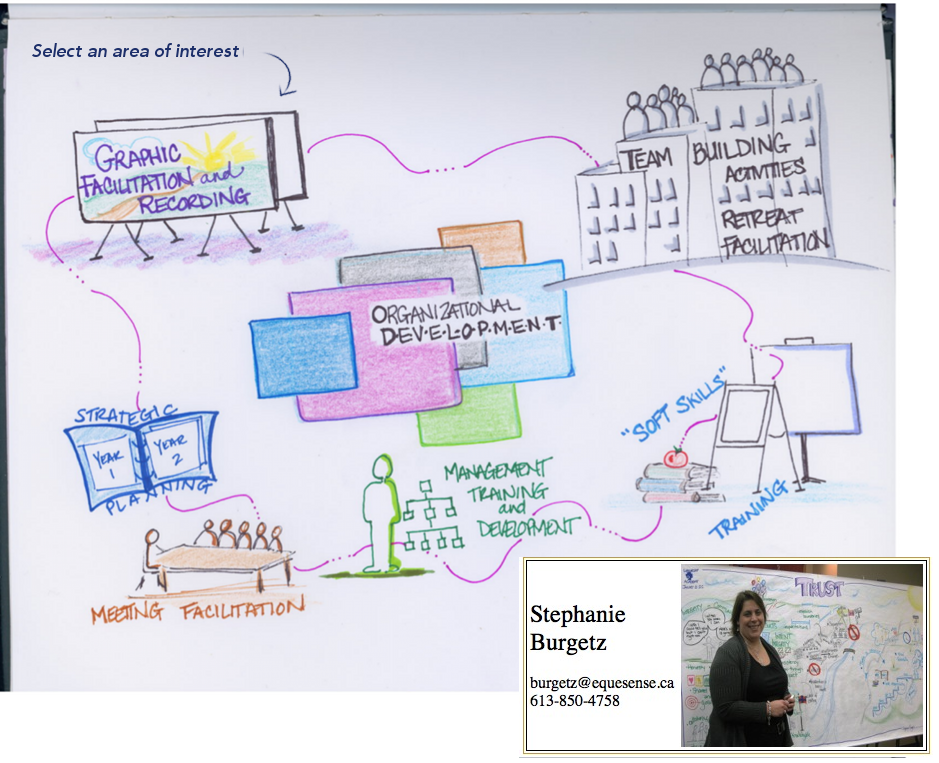 Select an area of interest
GRAPHIC
FACILITATION and
RECORDING
TEAM BUILDING
ACTIVITIES
RETREAT
FACILITATION
ORGANIZATIONAL
D·E·V·E·L·O·P·M·E·N·T·
STRATEGIC
YEAR
1
YEAR
2
PLANNING
"SOFT SKILLS"
TRAINING
MANAGEMENT
TRAINING
and
DEVELOPMENT
MEETING FACILITATION
Stephanie
Burgetz
burgetz@equesense.ca
613-850-4758
TRUST